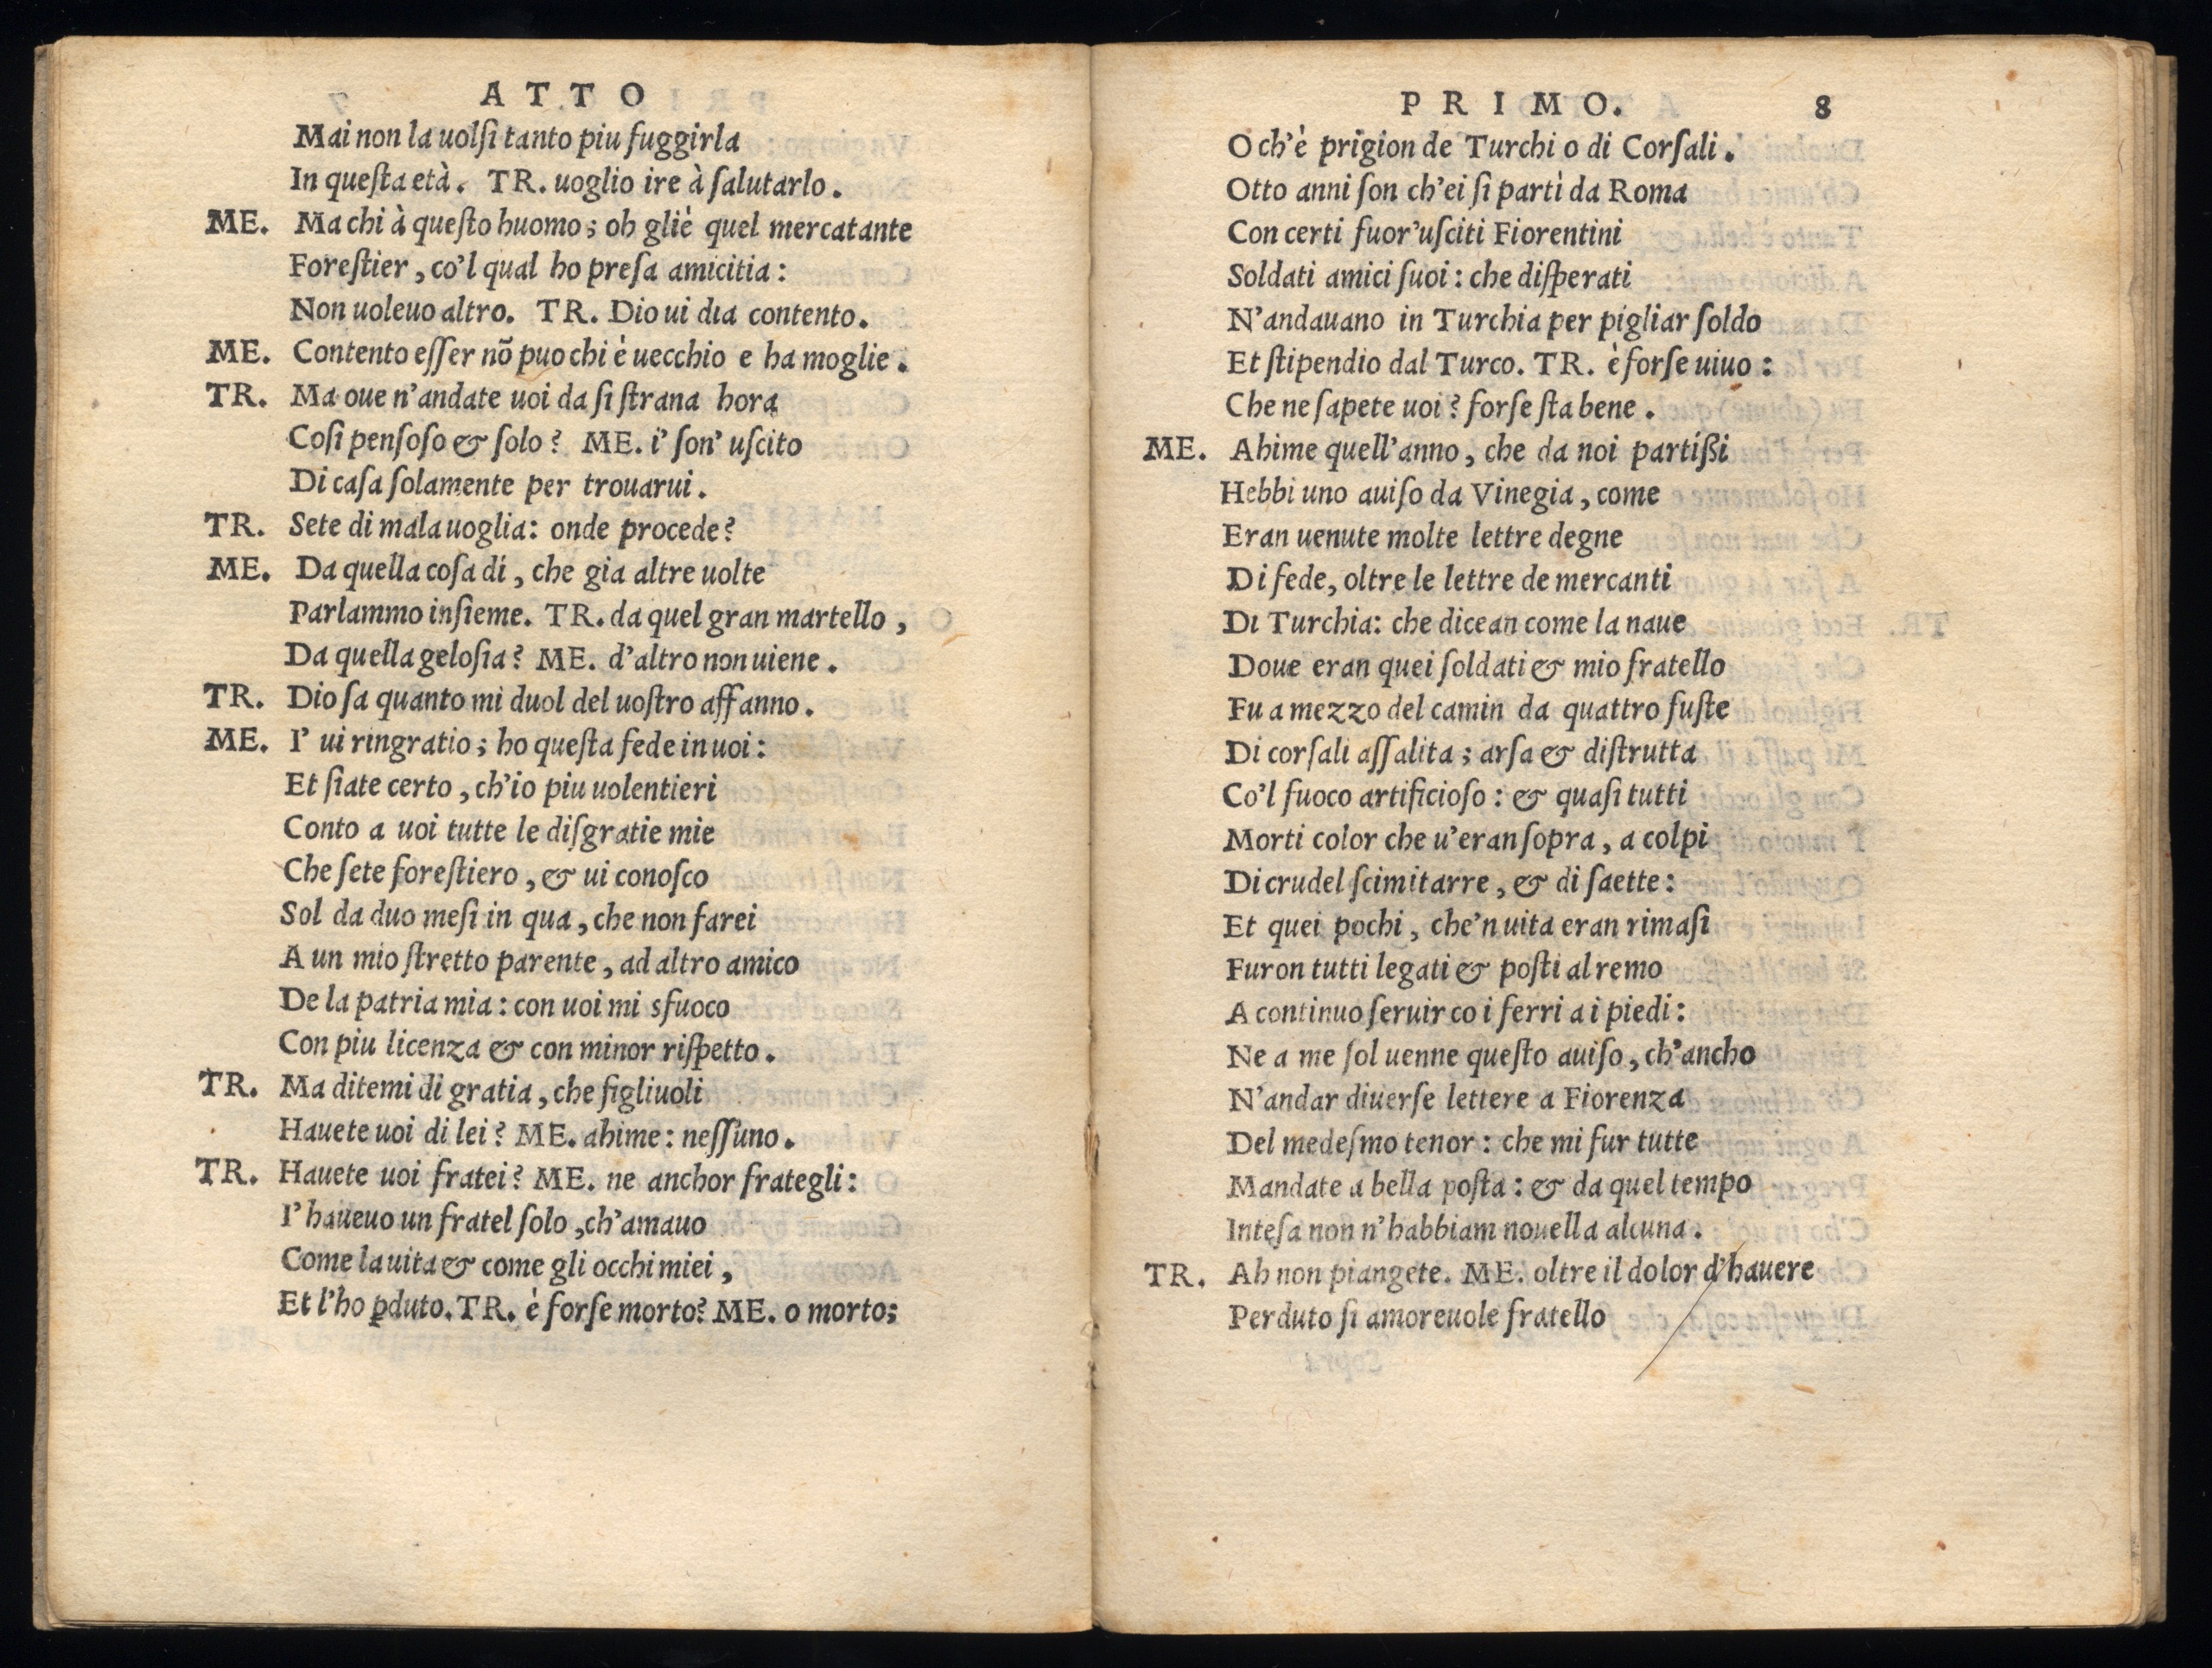 ATTO
Mai non la uolſi tanto piu fuggirla
In queſta età. TR. uoglio ire à ſalutarlo.
ME. Ma chi à queſto huomo; oh gliè quel mercatante
Foreſtier, co'l qual ho preſa amicitia:
Non uoleuo altro. TR. Dio ui dia contento.
ME. Contento eſſer nõ puo chi è uecchio e ha moglie.
TR. Ma oue n'andate uoi da ſi ſtrana hora
Coſi penſoſo & ſolo? ME. i' ſon' uſcito
Di caſa ſolamente per trouarui.
TR. Sete di mala uoglia: onde procede?
ME. Da quella coſa di, che gia altre uolte
Parlammo inſieme. TR. da quel gran martello,
Da quella geloſia? ME. d'altro non uiene.
TR. Dio ſa quanto mi duol del uoſtro affanno.
ME. I' ui ringratio; ho queſta fede in uoi:
Et ſiate certo, ch'io piu uolentieri
Conto a uoi tutte le diſgratie mie
Che ſete foreſtiero, & ui conoſco
Sol da duo meſi in qua, che non farei
A un mio ſtretto parente, ad altro amico
De la patria mia: con uoi mi sfuoco
Con piu licenza & con minor riſpetto.
TR. Ma ditemi di gratia, che figliuoli
Hauete uoi di lei? ME. ahime: neſſuno.
TR. Hauete uoi fratei? ME. ne anchor frategli:
I' haueuo un fratel ſolo, ch'amauo
Come la uita & come gli occhi miei,
Et l'ho ꝑduto. TR. è forſe morto? ME. o morto;
PRIMO. 8
O ch'è prigion de Turchi o di Corſali.
Otto anni ſon ch'ei ſi partì da Roma
Con certi fuor'uſciti Fiorentini
Soldati amici ſuoi: che diſperati
N'andauano in Turchia per pigliar ſoldo
Et ſtipendio dal Turco. TR. è forſe uiuo:
Che ne ſapete uoi? forſe ſta bene.
ME. Ahime quell'anno, che da noi partíßi
Hebbi uno auiſo da Vinegia, come
Eran uenute molte lettre degne
Di fede, oltre le lettre de mercanti
Di Turchia: che dicean come la naue
Doue eran quei ſoldati & mio fratello
Fu a mezzo del camin da quattro fuſte
Di corſali aſſalita; arſa & diſtrutta
Co'l fuoco artificioſo: & quaſi tutti
Morti color che u'eran ſopra, a colpi
Di crudel ſcimitarre, & di ſaette:
Et quei pochi, che'n uita eran rimaſi
Furon tutti legati & poſti al remo
A continuo ſeruir co i ferri a i piedi:
Ne a me ſol uenne queſto auiſo, ch'ancho
N'andar diuerſe lettere a Fiorenza
Del medeſmo tenor: che mi fur tutte
Mandate a bella poſta: & da quel tempo
Inteſa non n'habbiam nouella alcuna.
TR. Ah non piangete. ME. oltre il dolor d'hauere
Perduto ſi amoreuole fratello